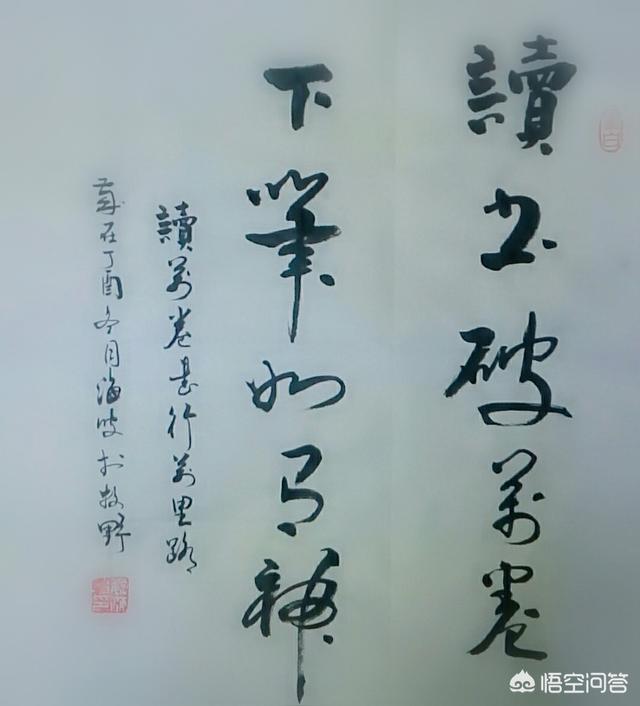 讀书破萬卷
下筆如有神
讀萬卷書行萬里路
歲在丁酉冬月海波於牧野
悟空问答